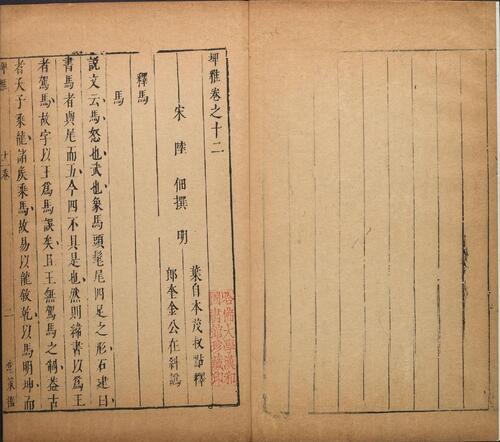 埤雅卷之十二
宋 陸 佃撰 明
葉自本茂叔點釋
郎奎金公在糾譌
哈佛大學漢和
圖書館珍藏印
釋馬
馬
說文云馬怒也武也象馬頭髦尾四足之形石建曰
書馬者與尾而五今四不具是也然則緯書以為王
者駕馬故字以王為馬誤矣且王無駕馬之制葢古
者天子乘龍諸矦乘馬故易以龍敘乾以馬明坤而
埤雅
十二卷
一